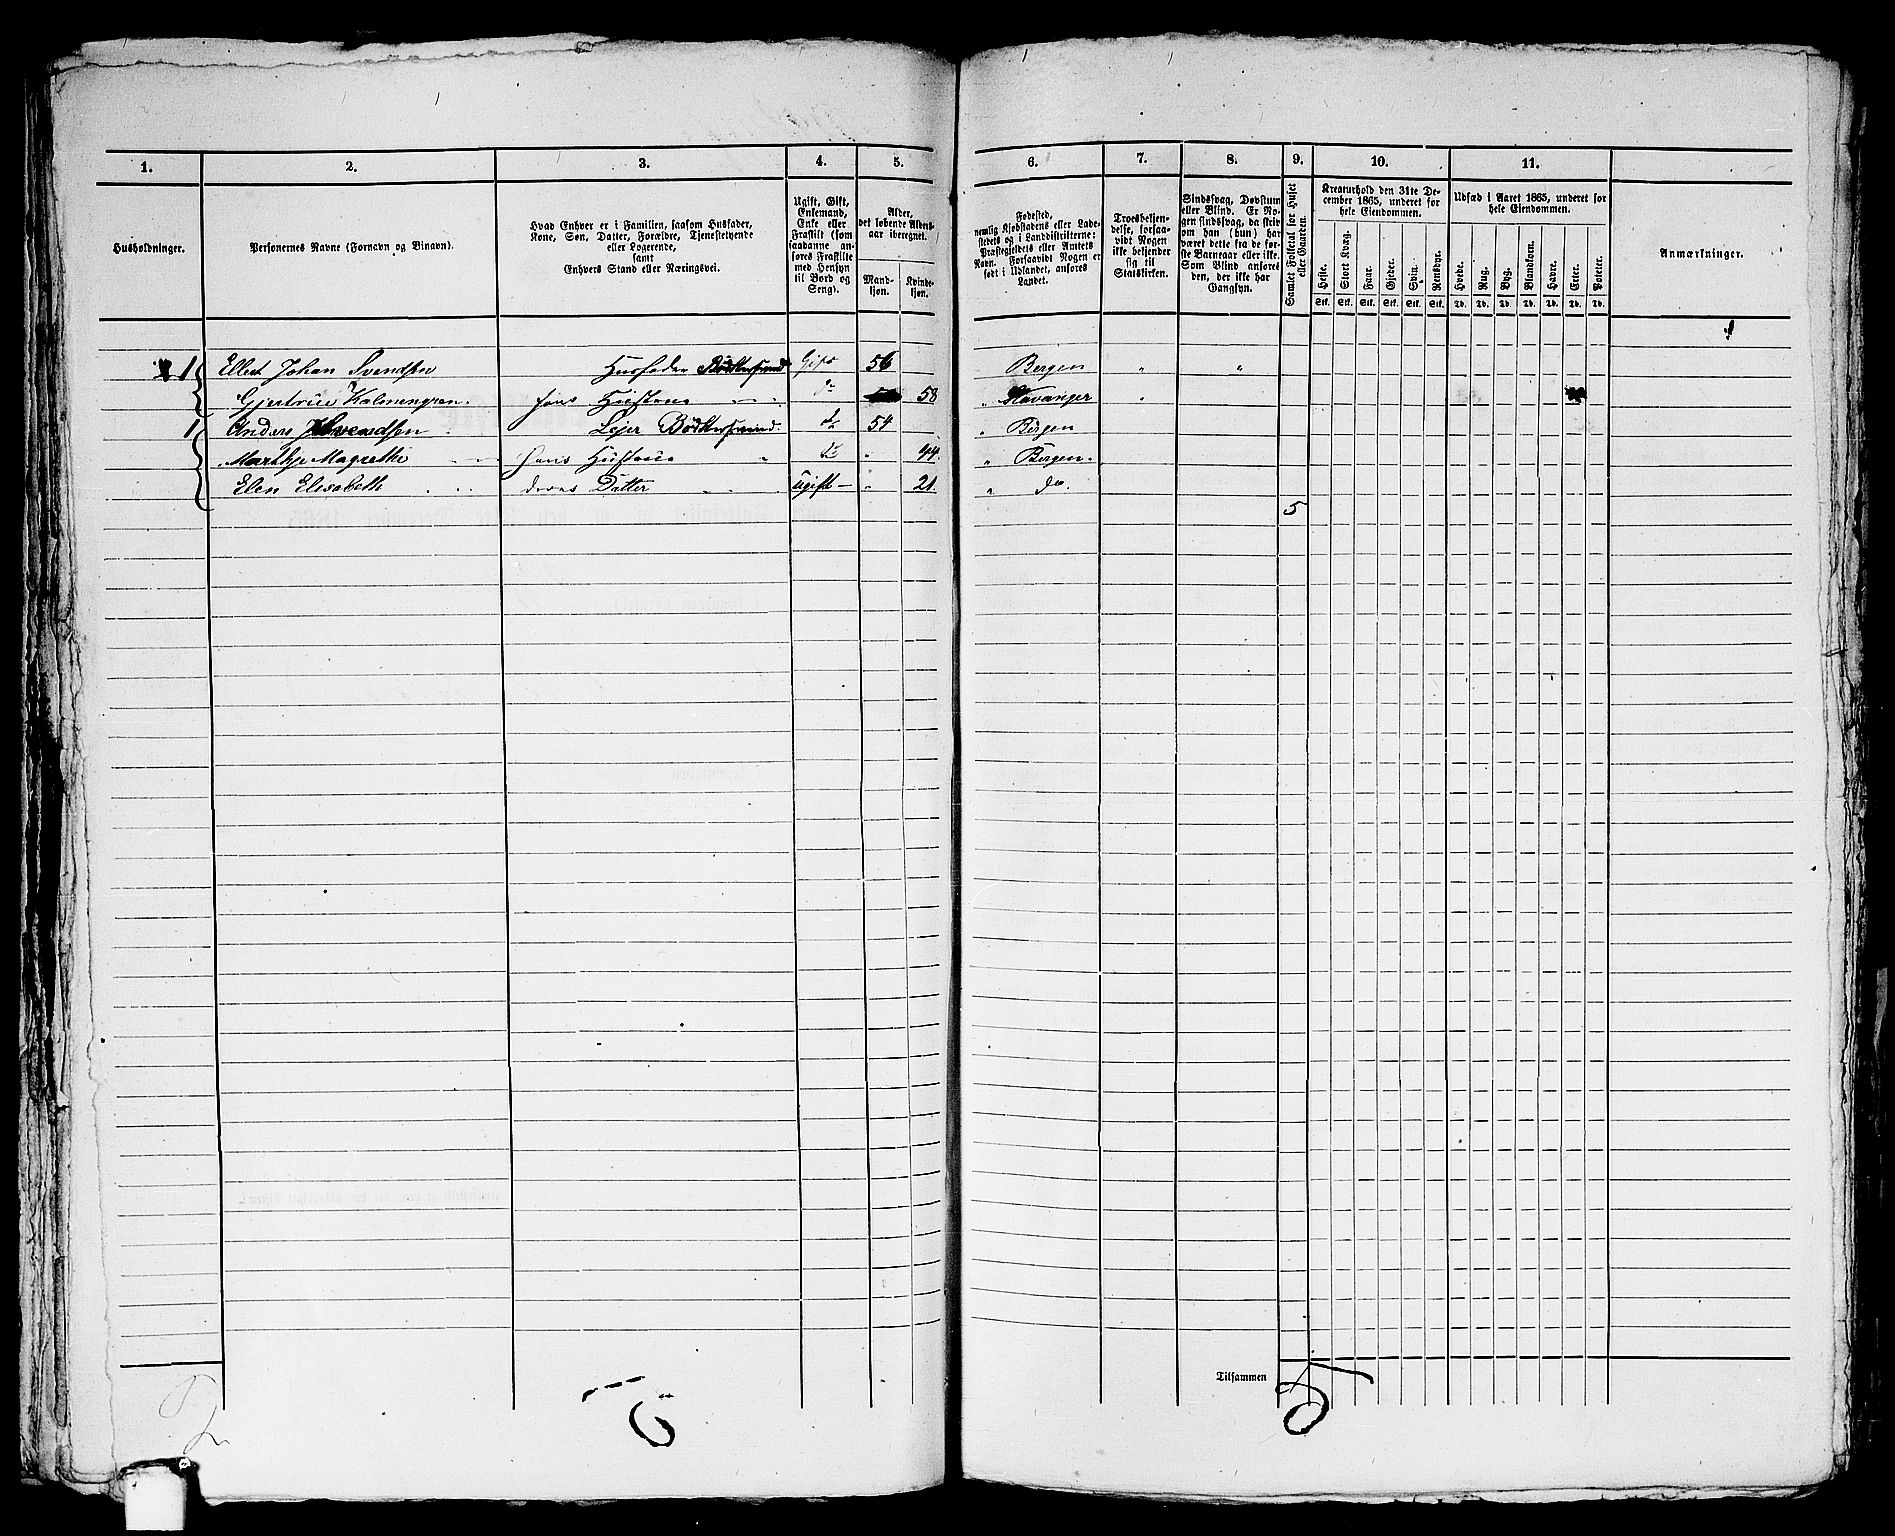 1. 2. 3. 4. 5. 6. 7. 8. 9. 10. 11.
Husholdninger.
Personernes Navne (Fornavn og Binavn).
Hvad Enhver er i Familien, saasom Husfader,
Kone, Søn, Datter, Forældre, Tjenestetyende
eller Logerende,
samt
Enhvers Stand eller Næringsvei.
Ugift, Gift,
Enkemand,
Enke eller
Fraskilt (som
saadanne an-
føres Fraskilte
med Hensyn
til Bord og
Seng).
Alder,
det løbende Alders-
aar iberegnet.
Mand-
kjøn.
Kvinde-
kjøn.
Fødested,
nemlig Kjøbstadens eller Lade-
stedets og i Landdistrikterne:
Præstegjeldets eller Amtets
Navn. Forsaavidt Nogen er
født i Udlandet, anføres
Landet.
Troesbekjen-
delse, forsaa-
vidt Nogen
ikke bekjender
sig til
Statskirken.
Sindssvag, Døvstum
eller Blind. Er No-
gen sindssvag, da skriv
om han (hun) har
været dette fra de før-
ste Barneaar eller ikke.
Som Blind anføres
den, der ikke har
Gangsyn.
Samlet Folketal for Huset
eller Gaarden.
Kreaturhold den 31te De-
cember 1865, underet for
hele Eiendommen.
Heste. Stort Kvæg. Faar. Gjeder. Svin. Rensdyr.
Stk. Stk. Stk. Stk. Stk. Stk.
Udsæd i Aaret 1865, underet for
hele Eiendommen.
Hvede. Rug. Byg. Blandkorn. Havre. Erter. Poteter.
Td. Td. Td. Td. Td. Td. Td.
Anmærkninger.
1
1 Ellert Johan Svendsen Husfader Bødkersvend Gift 56 Bergen " "
Gjertrüe Kalmengren. hans Hüstrue do 58 " Stavanger "
1 Anders Svendsen Lejer Bødkersvend. do 54 " Bergen
Marthje Magrethe hans Hüstrue do " 44. " Bergen.
Elen Elisabeth deres Datter ugift — " 21. " do.
5
Tilsammen